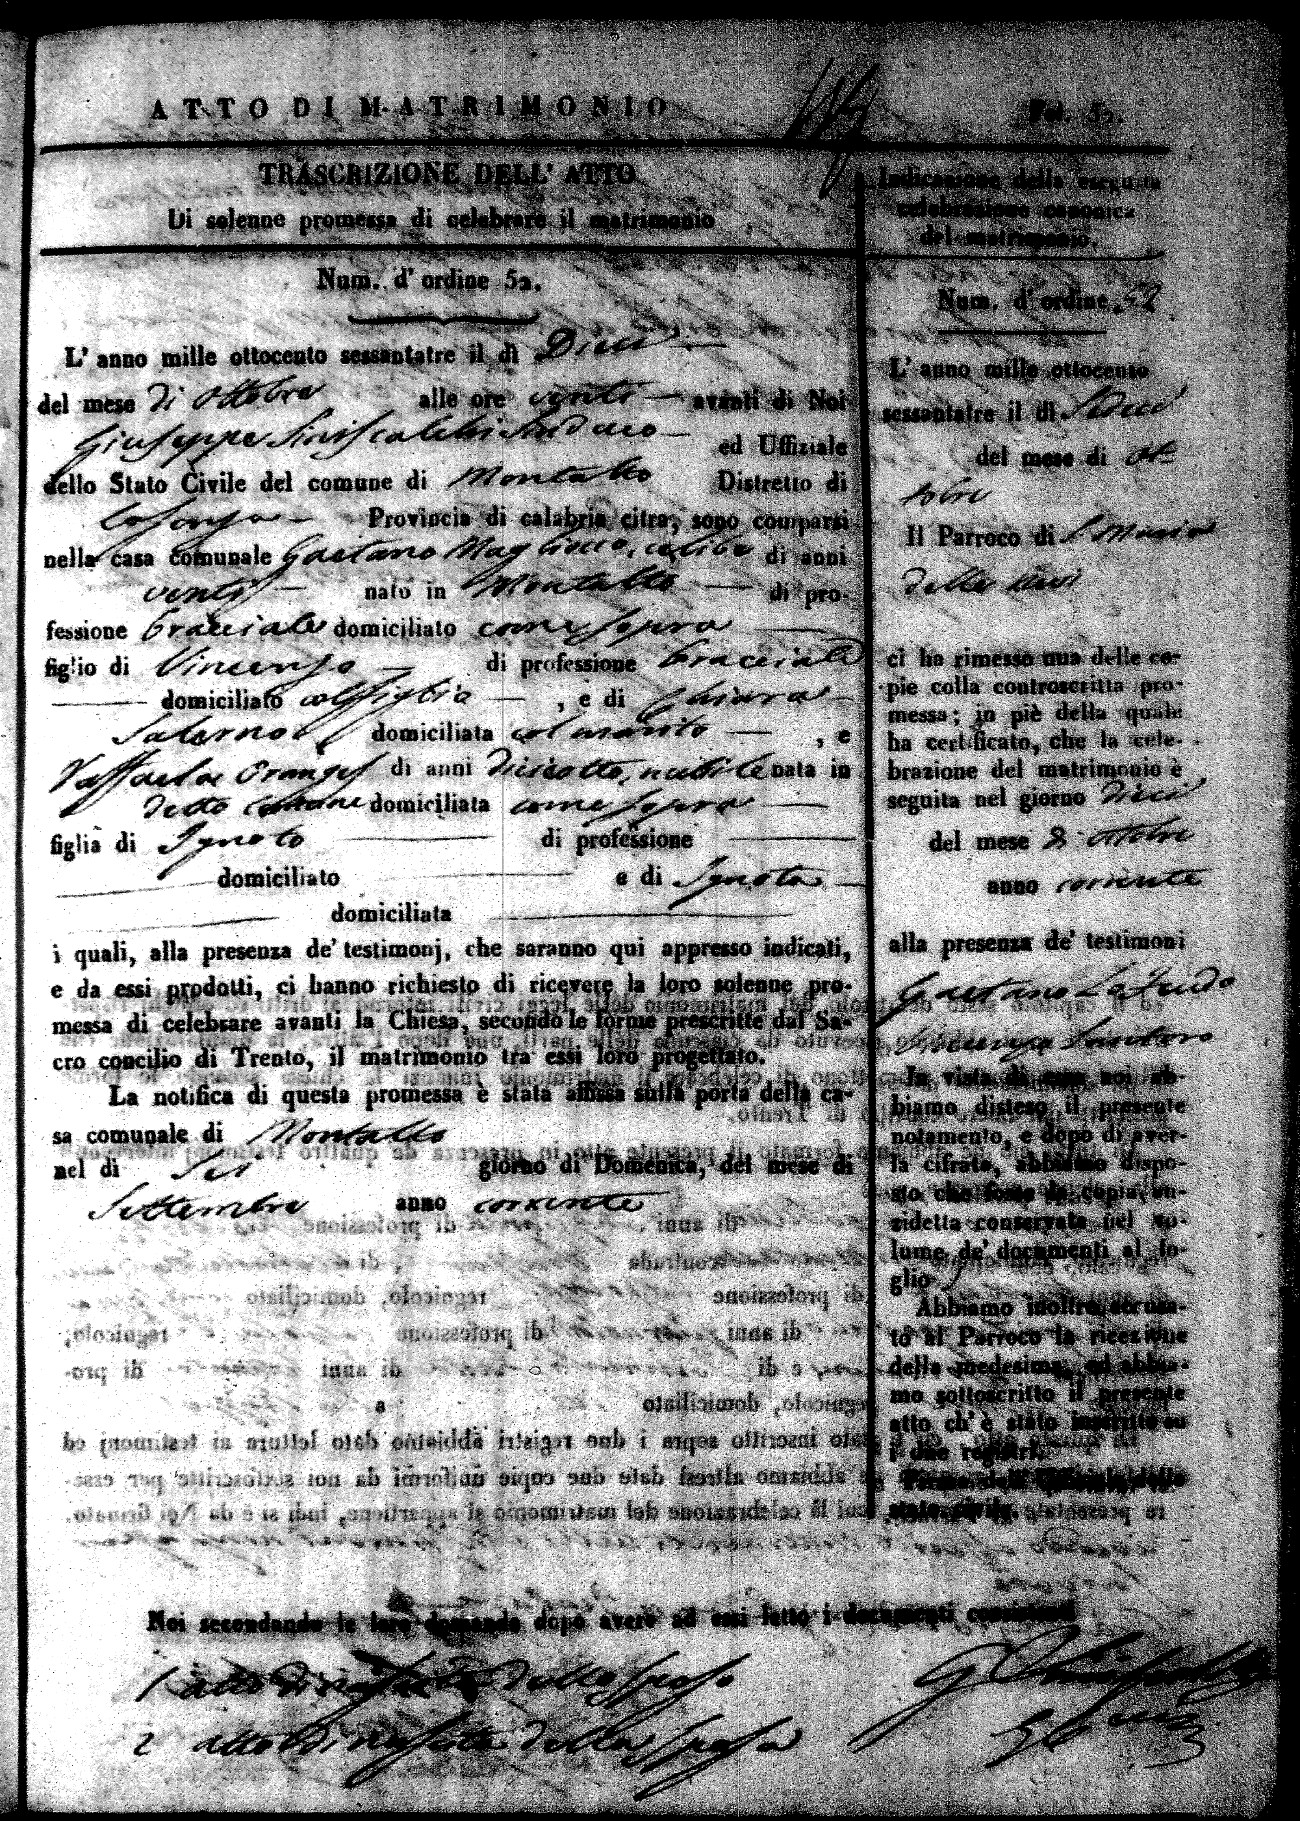 ATTO DI MATRIMONIO
Fol. 52.
TRASCRIZIONE DELL' ATTO
Di solenne promessa di celebrare il matrimonio
Num. d' ordine 52.
L' anno mille ottocento sessantatre il dì Dieci
del mese di Ottobre alle ore venti avanti di Noi
Giuseppe Siniscalchi Sindaco ed Uffiziale
dello Stato Civile del comune di Montalto Distretto di
Cosenza Provincia di calabria citra, sono comparsi
nella casa comunale Gaetano Magliocco, celibe di anni
venti nato in Montalto di pro-
fessione bracciale domiciliato come sopra
figlio di Vincenzo di professione bracciale
domiciliato col figlio , e di Chiara
Salerno domiciliata col marito , e
Raffaela Orangis di anni diciotto, nubile nata in
detto comune domiciliata come sopra
figlia di Ignoto di professione
domiciliato e di Ignota
domiciliata
i quali, alla presenza de' testimonj, che saranno qui appresso indicati,
e da essi prodotti, ci hanno richiesto di ricevere la loro solenne pro-
messa di celebrare avanti la Chiesa, secondo le forme prescritte dal Sa-
cro concilio di Trento, il matrimonio tra essi loro progettato.
La notifica di questa promessa è stata affissa sulla porta della ca-
sa comunale di Montalto
nel di Sei giorno di Domenica, del mese di
Settembre anno corrente
Noi secondando le loro domande dopo avere ad essi letto i documenti consistenti
1 atto di nascita dello sposo
2 atto di nascita della sposa
Indicazione della eseguita
celebrazione canonica
del matrimonio.
Num. d' ordine 52
L' anno mille ottocento
sessantatre il dì Sedici
del mese di Ot
tobre
Il Parroco di S. Maria
della
ci ha rimesso una delle co-
pie colla controscritta pro-
messa; in piè della quale
ha certificato, che la cele-
brazione del matrimonio è
seguita nel giorno dieci
del mese 8 ottobre
anno corrente
alla presenza de' testimoni
Gaetano
Vincenzo Santoro
In vista di essa noi ab-
biamo disteso il presente
notamento, e dopo di aver-
la cifrata, abbiamo dispo-
sto che fosse la copia su-
ridetta conservata nel vo-
lume de' documenti al fo-
glio
Abbiamo inoltre accusa-
to al Parroco la ricezione
della medesima, ed abbia-
mo sottoscritto il presente
atto ch' è stato inscritto su
i due registri.
Firma dell' Uffiziale dello
stato civile.